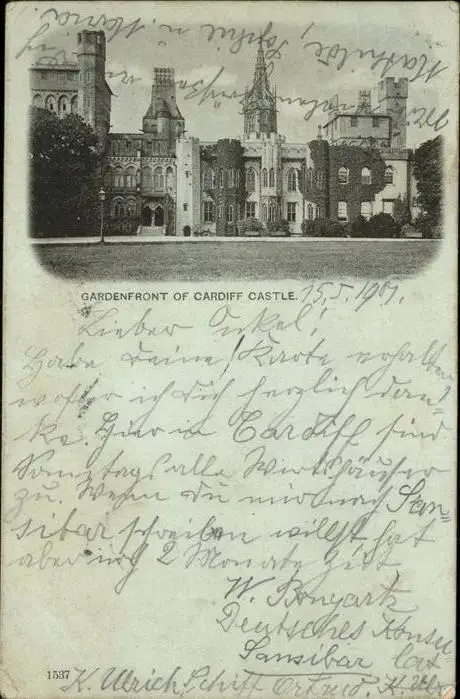 Mathilde, Sophie u. Maria.
GARDENFRONT OF CARDIFF CASTLE.
15,5.1901.
Lieber Onkel!
Habe deine Karte erhalten
wofür ich dich herzlich dan=
ke. Hier in Cardiff sind
Sonntags alle Wirtshäuser
zu. Wenn du mir nach San=
sibar schreiben willst hat
aber noch 2 Monate Zeit
W. Bongartz
Deutsches Konsu
Sansibar lat
1537
K. Ulrich Schiff